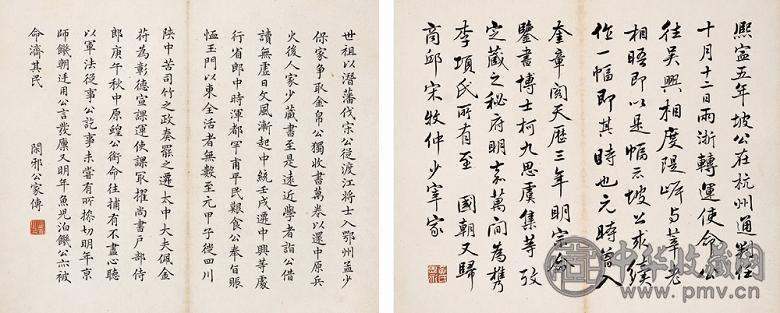 熙寧五年坡公在杭州通判任
十月十二日兩浙轉運使命公
往吳興相度隄岸与莘老
相晤即以是幅示坡公求續
作一幅即其時也元時曾入
奎章閣天歷三年明宗倫
鑒書博士柯九思虞集等攷
定藏之秘府明嘉萬間為檇
李項氏所有至 國朝又歸
商邱宋牧仲少宰家
世祖以潛藩伐宋公從渡江將士入鄂州孟少
保家爭取金帛公獨收書萬卷以還中原兵
火後人家少藏書至是遠近學者詣公借
讀無虛日文風漸起中統壬戌遷中興等處
行省郎中時渾都罕甫平民艱食公奉旨賑
恤玉門以東全活者無數至元甲子從四川
陝中苦司竹之政奏罷之遷太中大夫佩金
符為彰德宣課運使課最擢尚書戶部侍
郎庚午秋中原蝗公銜命往捕有不盡心聽
以軍法從事公訖事未嘗有所捶切明年京
師饑朝廷用公言發廩又明年魚兒泊饑公亦被
命濟其民
邪公家傳
中华收藏网
www.pmv.cn